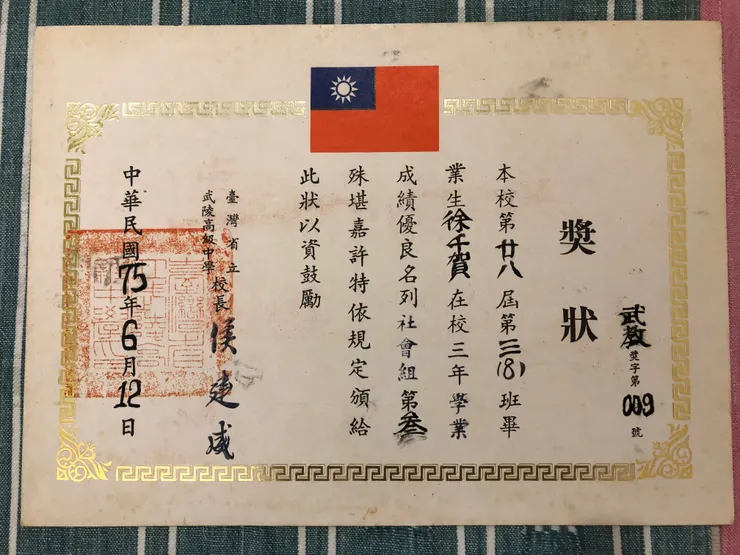 武教獎字第009號
獎狀
本校第廿八屆第三(8)班畢
業生徐千賀在校三年學業
成績優良名列社會組第叁
殊堪嘉許特依規定頒給
此狀以資鼓勵
臺灣省立
武陵高級中學
校長 侯建威
中華民國75年6月12日